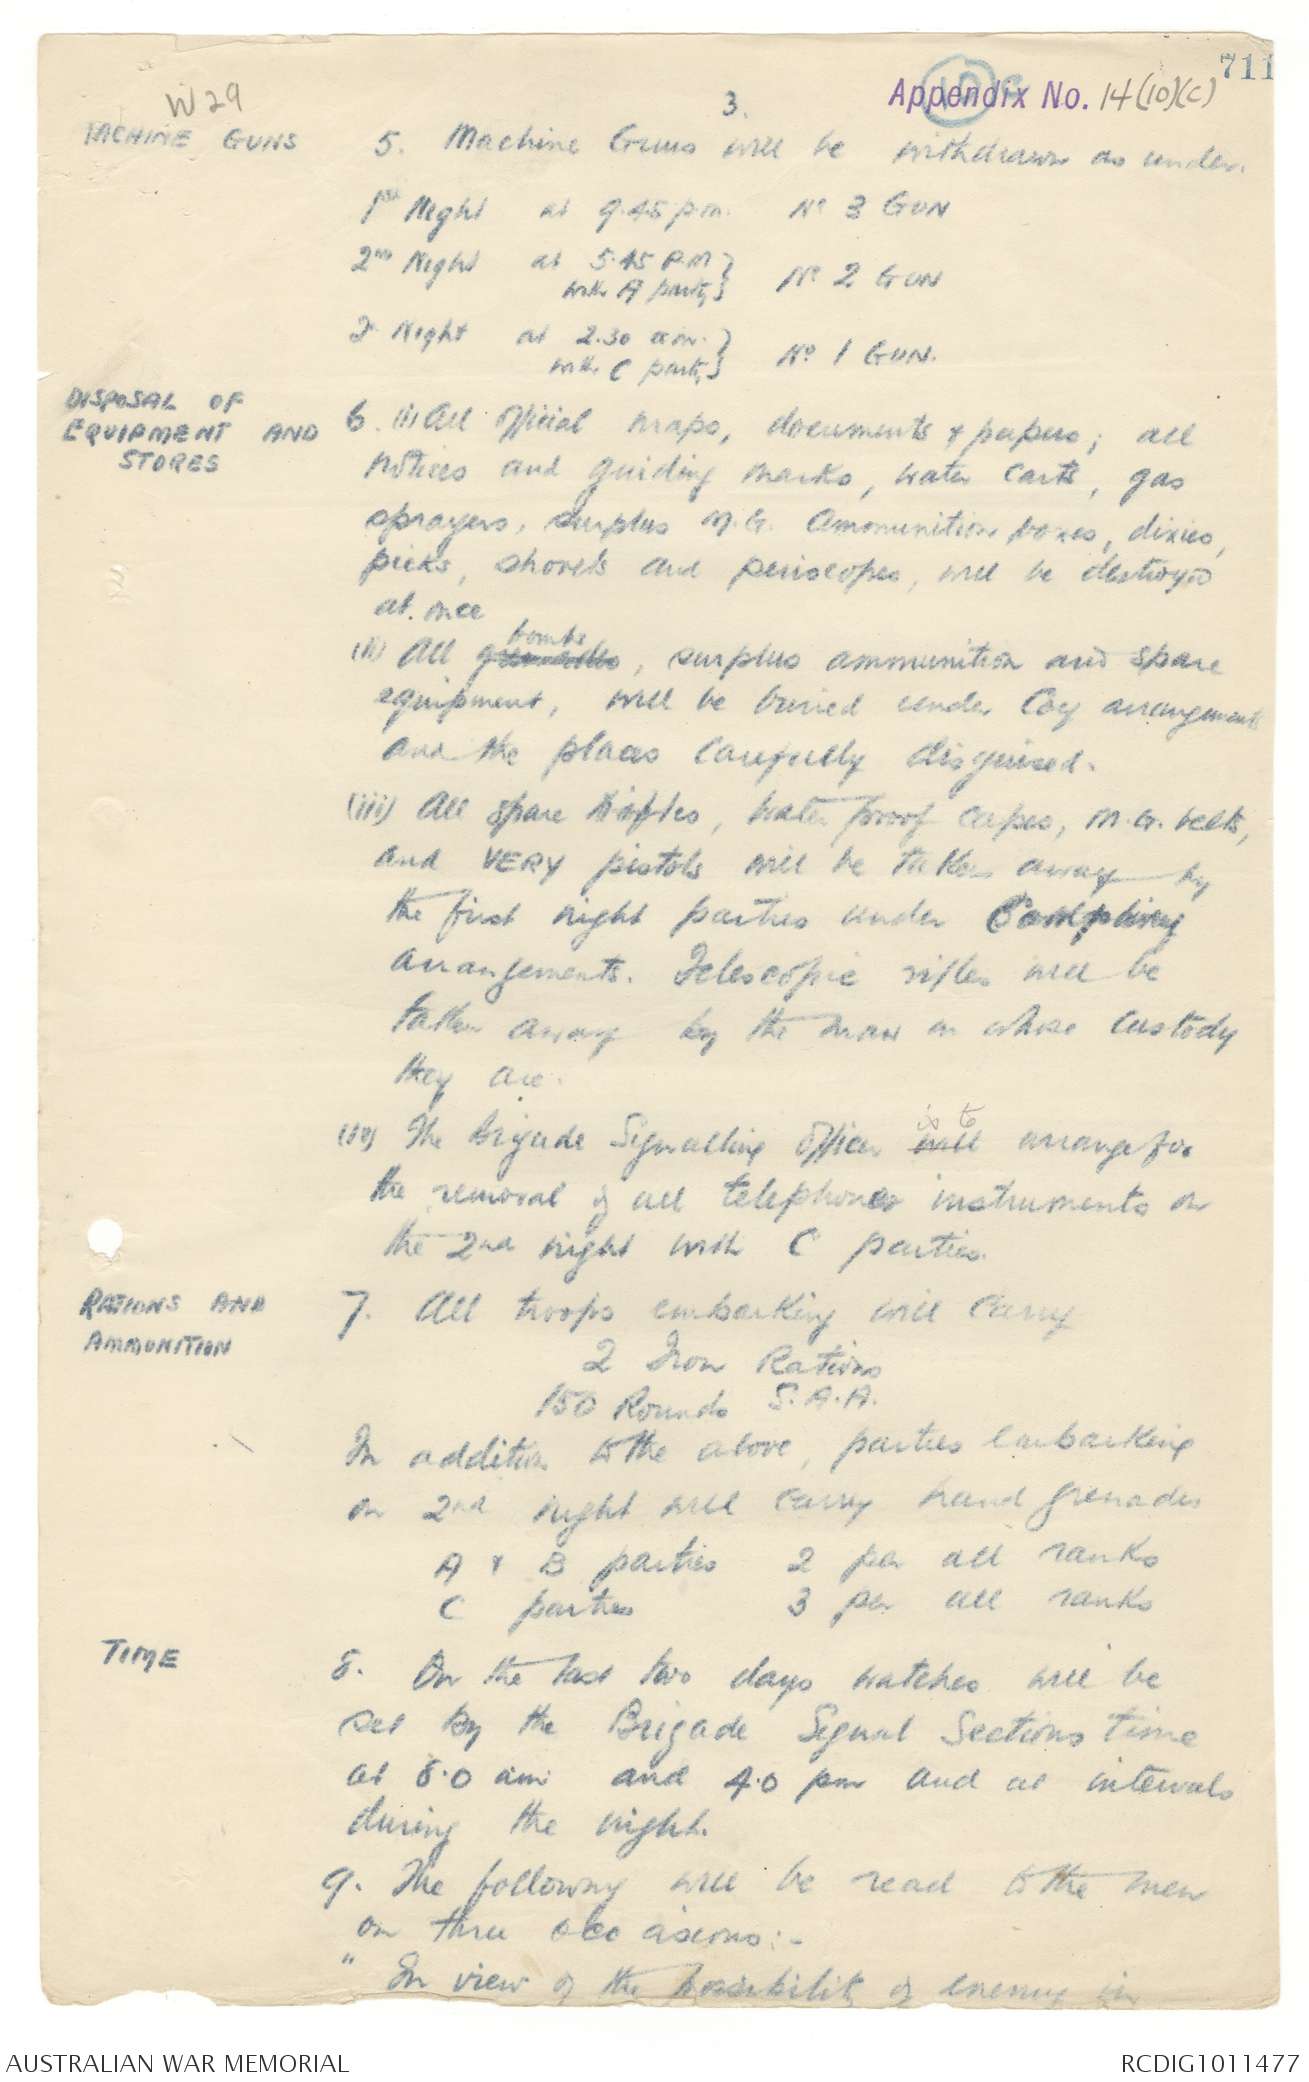 711
W29
3.
Appendix No. 14(10)(C)
MACHINE GUNS
5. Machine Guns will be withdrawn as under.
1st Night at 9.45 p.m. No 3 GUN
2nd Night at 5.45 P.M } with A party } No 2 GUN
2d Night at 2.30 a.m. } with C party } No 1 GUN.
DISPOSAL OF
EQUIPMENT AND
STORES
6. (i) All official maps, documents & papers; all
notices and guiding marks, water carts, gas
sprayers, surplus M.G. Ammunition boxes, dixies,
picks, shovels and periscopes, will be destroyed
at once
bombs
(ii) All grenades, surplus ammunition and spare
equipment, will be buried under Coy arrangements
and the places carefully disguised.
(iii) All spare Rifles, water proof capes, M.G. belts,
and VERY pistols will be taken away by
the first night parties under Company
arrangements. Telescopic rifles will be
taken away by the man in whose custody
they are.
is to
(iv) The Brigade Signalling Officer will arrange for
the removal of all telephones instruments on
the 2nd night with C parties.
RATIONS AND
AMMUNITION
7. All troops embarking will carry
2 Iron Rations
150 Rounds S.A.A.
In addition to the above, parties embarking
on 2nd night will carry hand grenades
A & B parties 2 per all ranks
C parties 3 per all ranks
TIME
8. On the last two days watches will be
set by the Brigade Signal Sections time
at 8.0 am and 4.0 pm and at intervals
during the night.
9. The following will be read to the men
on three occasions:-
" In view of the possibility of enemy in
AUSTRALIAN WAR MEMORIAL
RCDIG1011477